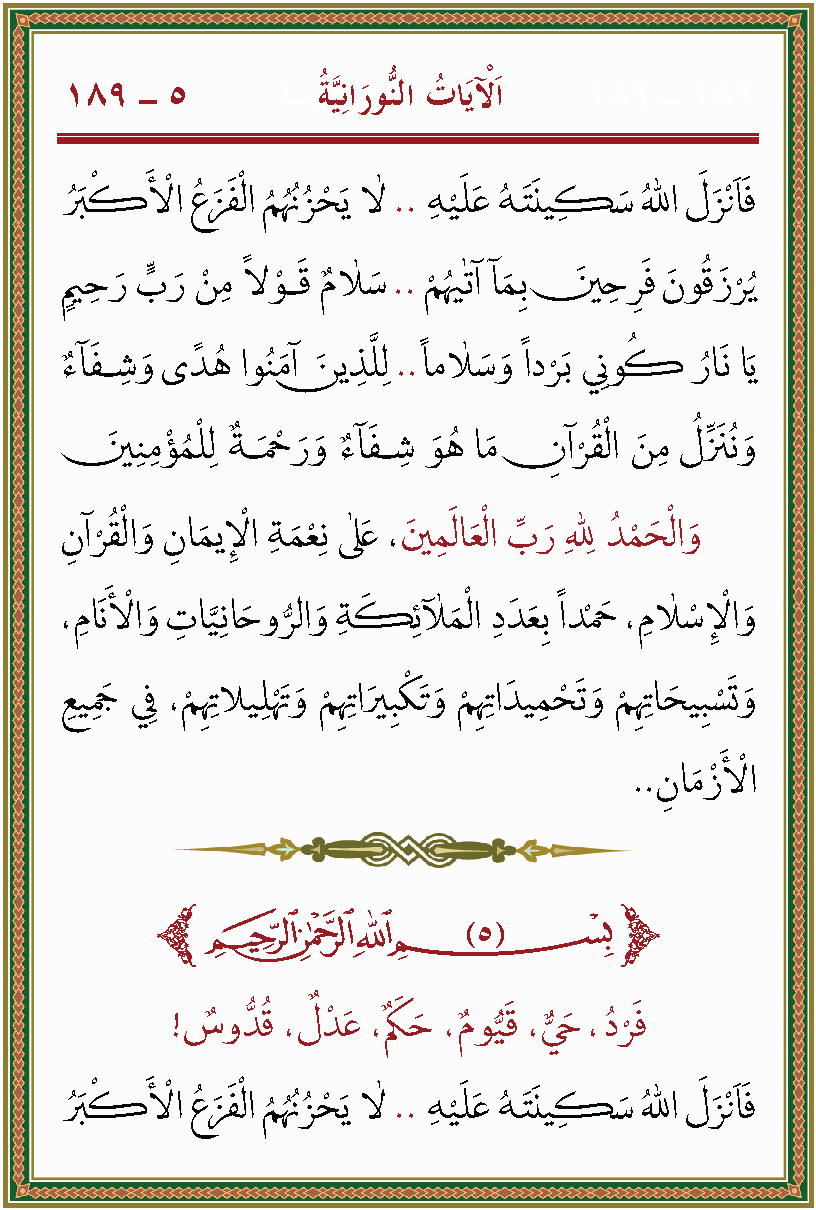 اَلْآيَاتُ النُّورَانِيَّةُ ٥ ـ ١٨٩
فَاَنْزَلَ اللهُ سَكِينَتَهُ عَلَيْهِ .. لَا يَحْزُنُهُمُ الْفَزَعُ الْأَكْبَرُ
يُرْزَقُونَ فَرِحِينَ بِمَآ آتٰيهُمْ .. سَلٰامٌ قَوْلاً مِنْ رَبٍّ رَحِيمٍ
يَا نَارُ كُونِي بَرْداً وَسَلٰاماً .. لِلَّذِينَ آمَنُوا هُدًى وَشِفَآءٌ
وَنُنَزِّلُ مِنَ الْقُرْآنِ مَا هُوَ شِفَآءٌ وَرَحْمَةٌ لِلْمُؤْمِنِينَ
وَالْحَمْدُ لِلهِ رَبِّ الْعَالَمِينَ، عَلٰى نِعْمَةِ الْإِيمَانِ وَالْقُرْآنِ
وَالْإِسْلٰامِ، حَمْداً بِعَدَدِ الْمَلَآئِكَةِ وَالرُّوحَانِيَّاتِ وَالْأَنَامِ،
وَتَسْبِيحَاتِهِمْ وَتَحْمِيدَاتِهِمْ وَتَكْبِيرَاتِهِمْ وَتَهْلِيلَاتِهِمْ، فِي جَمِيعِ
الْأَزْمَانِ..
بِسْــــمِ ٱللهِ ٱلرَّحْمٰنِ ٱلرَّحِيمِ (٥)
فَرْدُ، حَيٌّ، قَيُّومٌ، حَكَمٌ، عَدْلٌ، قُدُّوسٌ!
فَاَنْزَلَ اللهُ سَكِينَتَهُ عَلَيْهِ .. لَا يَحْزُنُهُمُ الْفَزَعُ الْأَكْبَرُ